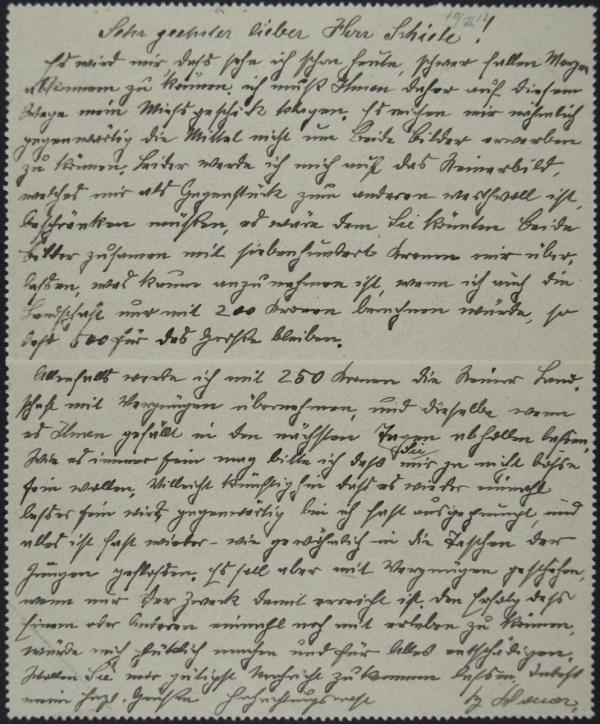 19/VI 12
Sehr geehrter lieber Herr Schiele!
Es wird mir, dass sehe ich schon heute, schwer fallen Morgen
abkommen zu können. ich muß Ihnen daher auf diesem
Wege mein Missgeschick klagen. Es reichen mir nähmlich
gegenwärtig die Mittel nicht um beide Bilder erwerben
zu können. Leider werde ich mich auf das Steinerbild,
welches mir als Gegenstück zum anderen werthvoll ist,
beschränken müßen, es wäre denn Sie könnten beide
Bilder zusamen mit siebenhundert Kronen mir über,
lassen, was kaum anzunehmen ist, wenn ich auch die
Landschaft nur mit 200 Kronen berechnen würde, so
daß 500 für das Große bleiben.
Allenfalls werde ich mit 250 Kronen die Steiner Land,
schaft mit Vergnügen übernehmen, und dieselbe wenn
es Ihnen gefällt in den nächsten Tagen abhollen lassen,
Wie es immer sein mag bitte ich daß Sie mir ja nicht böse
sein wollen, Villeicht künftighin daß es wieder einmahl
besser sein wird, gegenwärtig bin ich fast ausgepumpt, und
alles ist fast wieder - wie gewöhnlich - in die Taschen der
Jungen geflossen. Es soll aber mit Vergnügen geschehen,
wenn nur der Zweck damit erreicht ist. den Erfolg des
Einen oder Anderen einmahl noch mit erleben zu können,
würde mich glücklich machen und für Alles entschädigen.
Wollen Sie mir gütigst Nachricht zukommen lassen. Indeß
mein herzl. Grüße Hochachtungsvoll